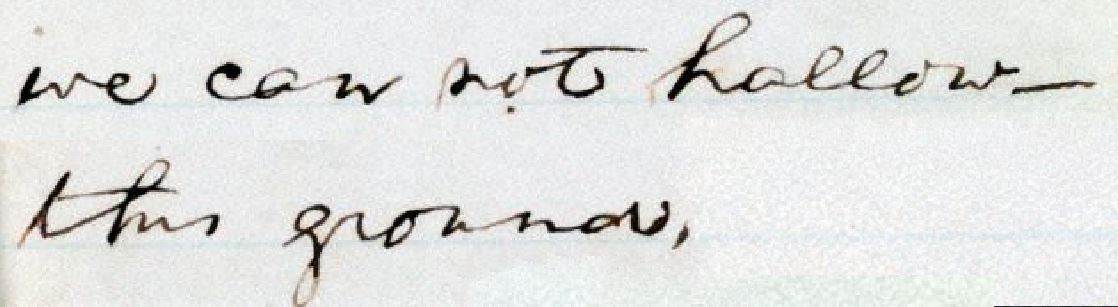 we can not hallow—
this ground,